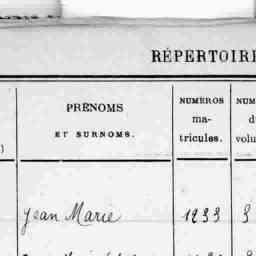 RÉPERTOIRE
PRÉNOMS
ET SURNOMS.
NUMÉROS
ma-
tricules.
NUM
d
volu
)
Jean Marie 1233 3